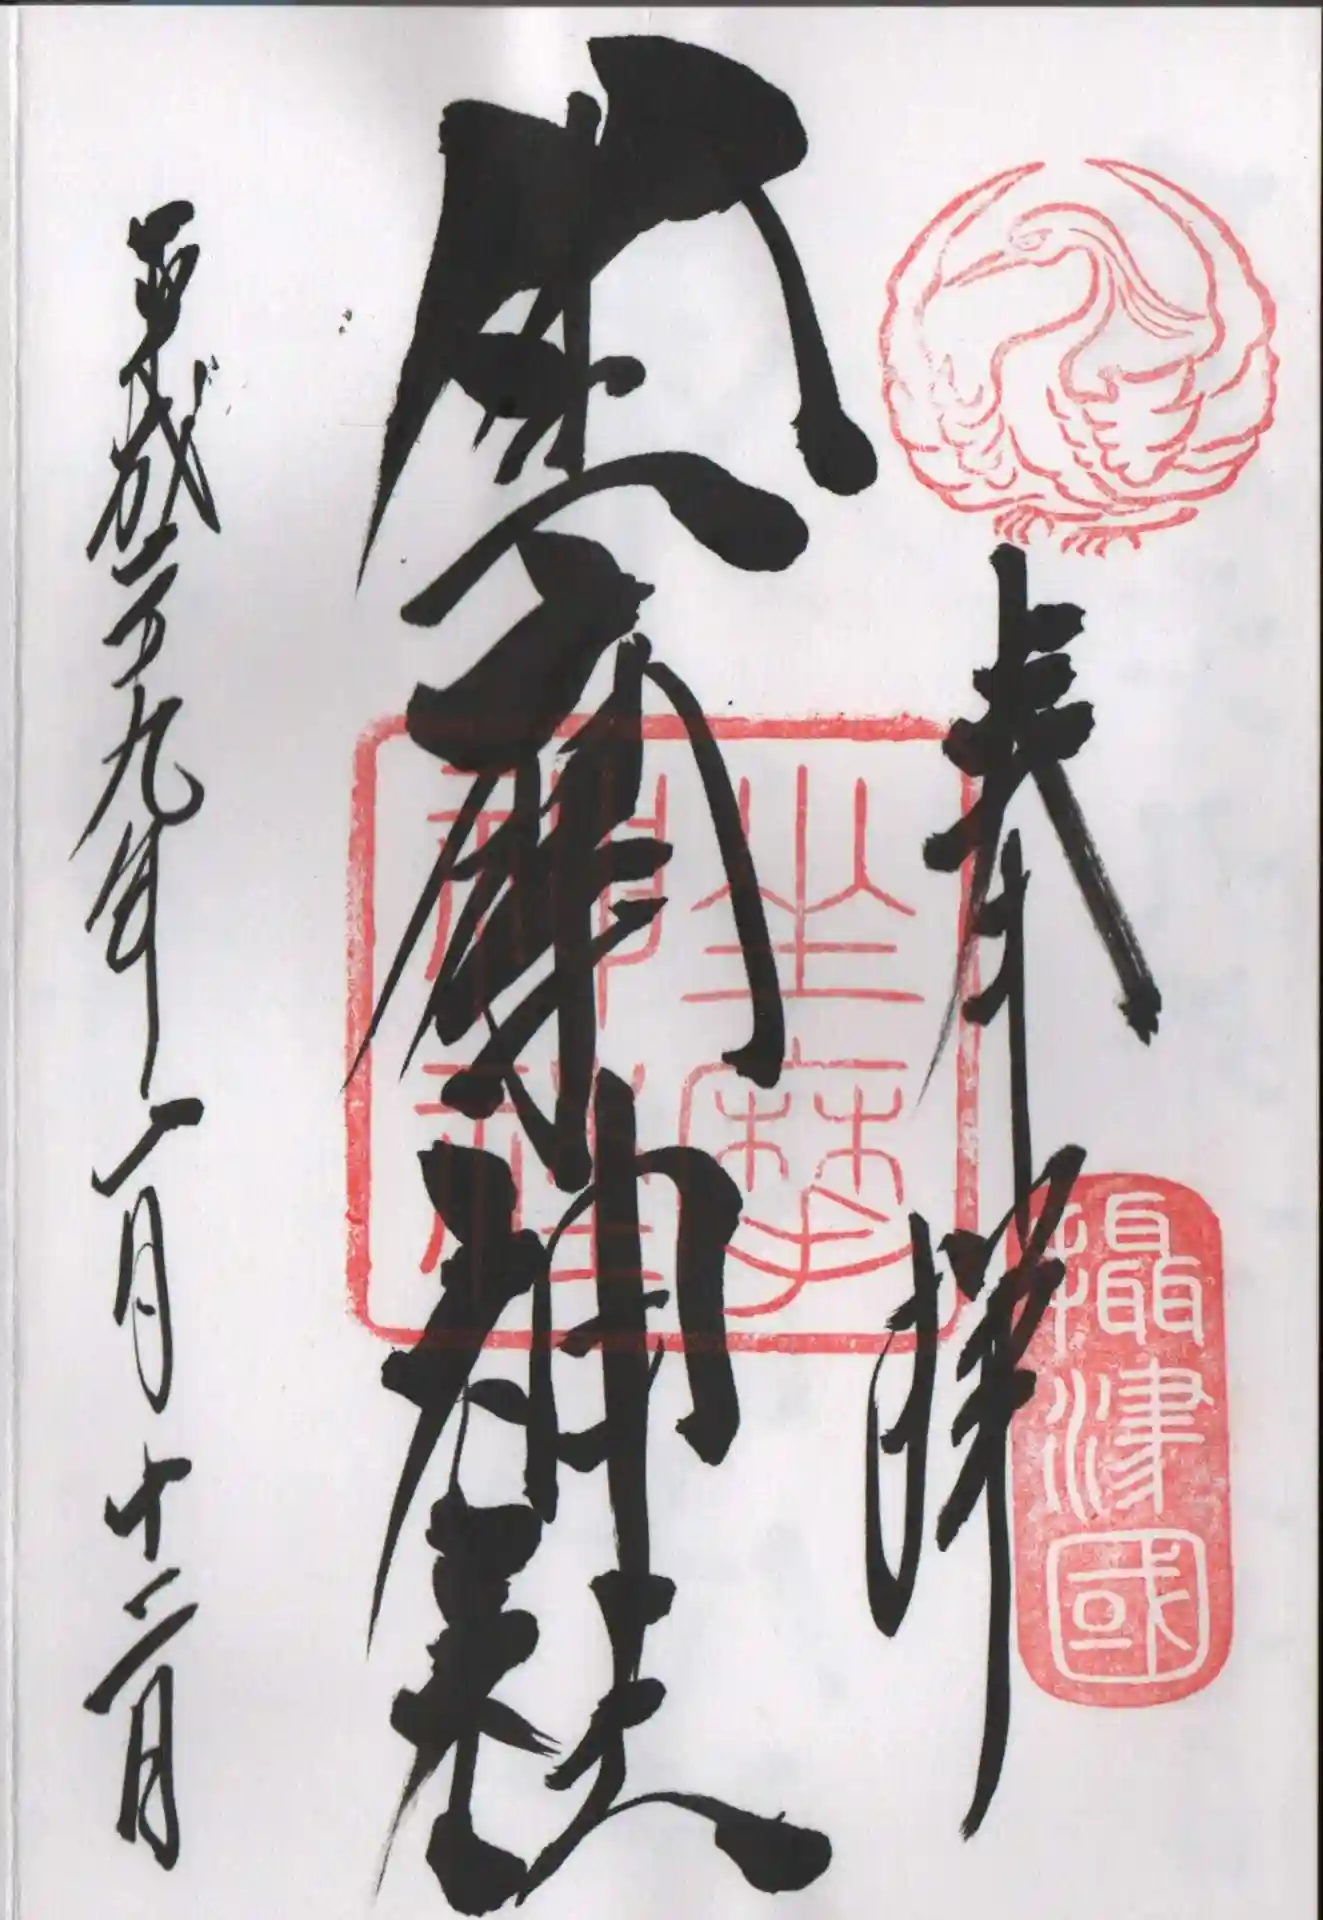 奉拝
攝津國
坐摩神社
坐摩
神社
平成二十九年一月十二日